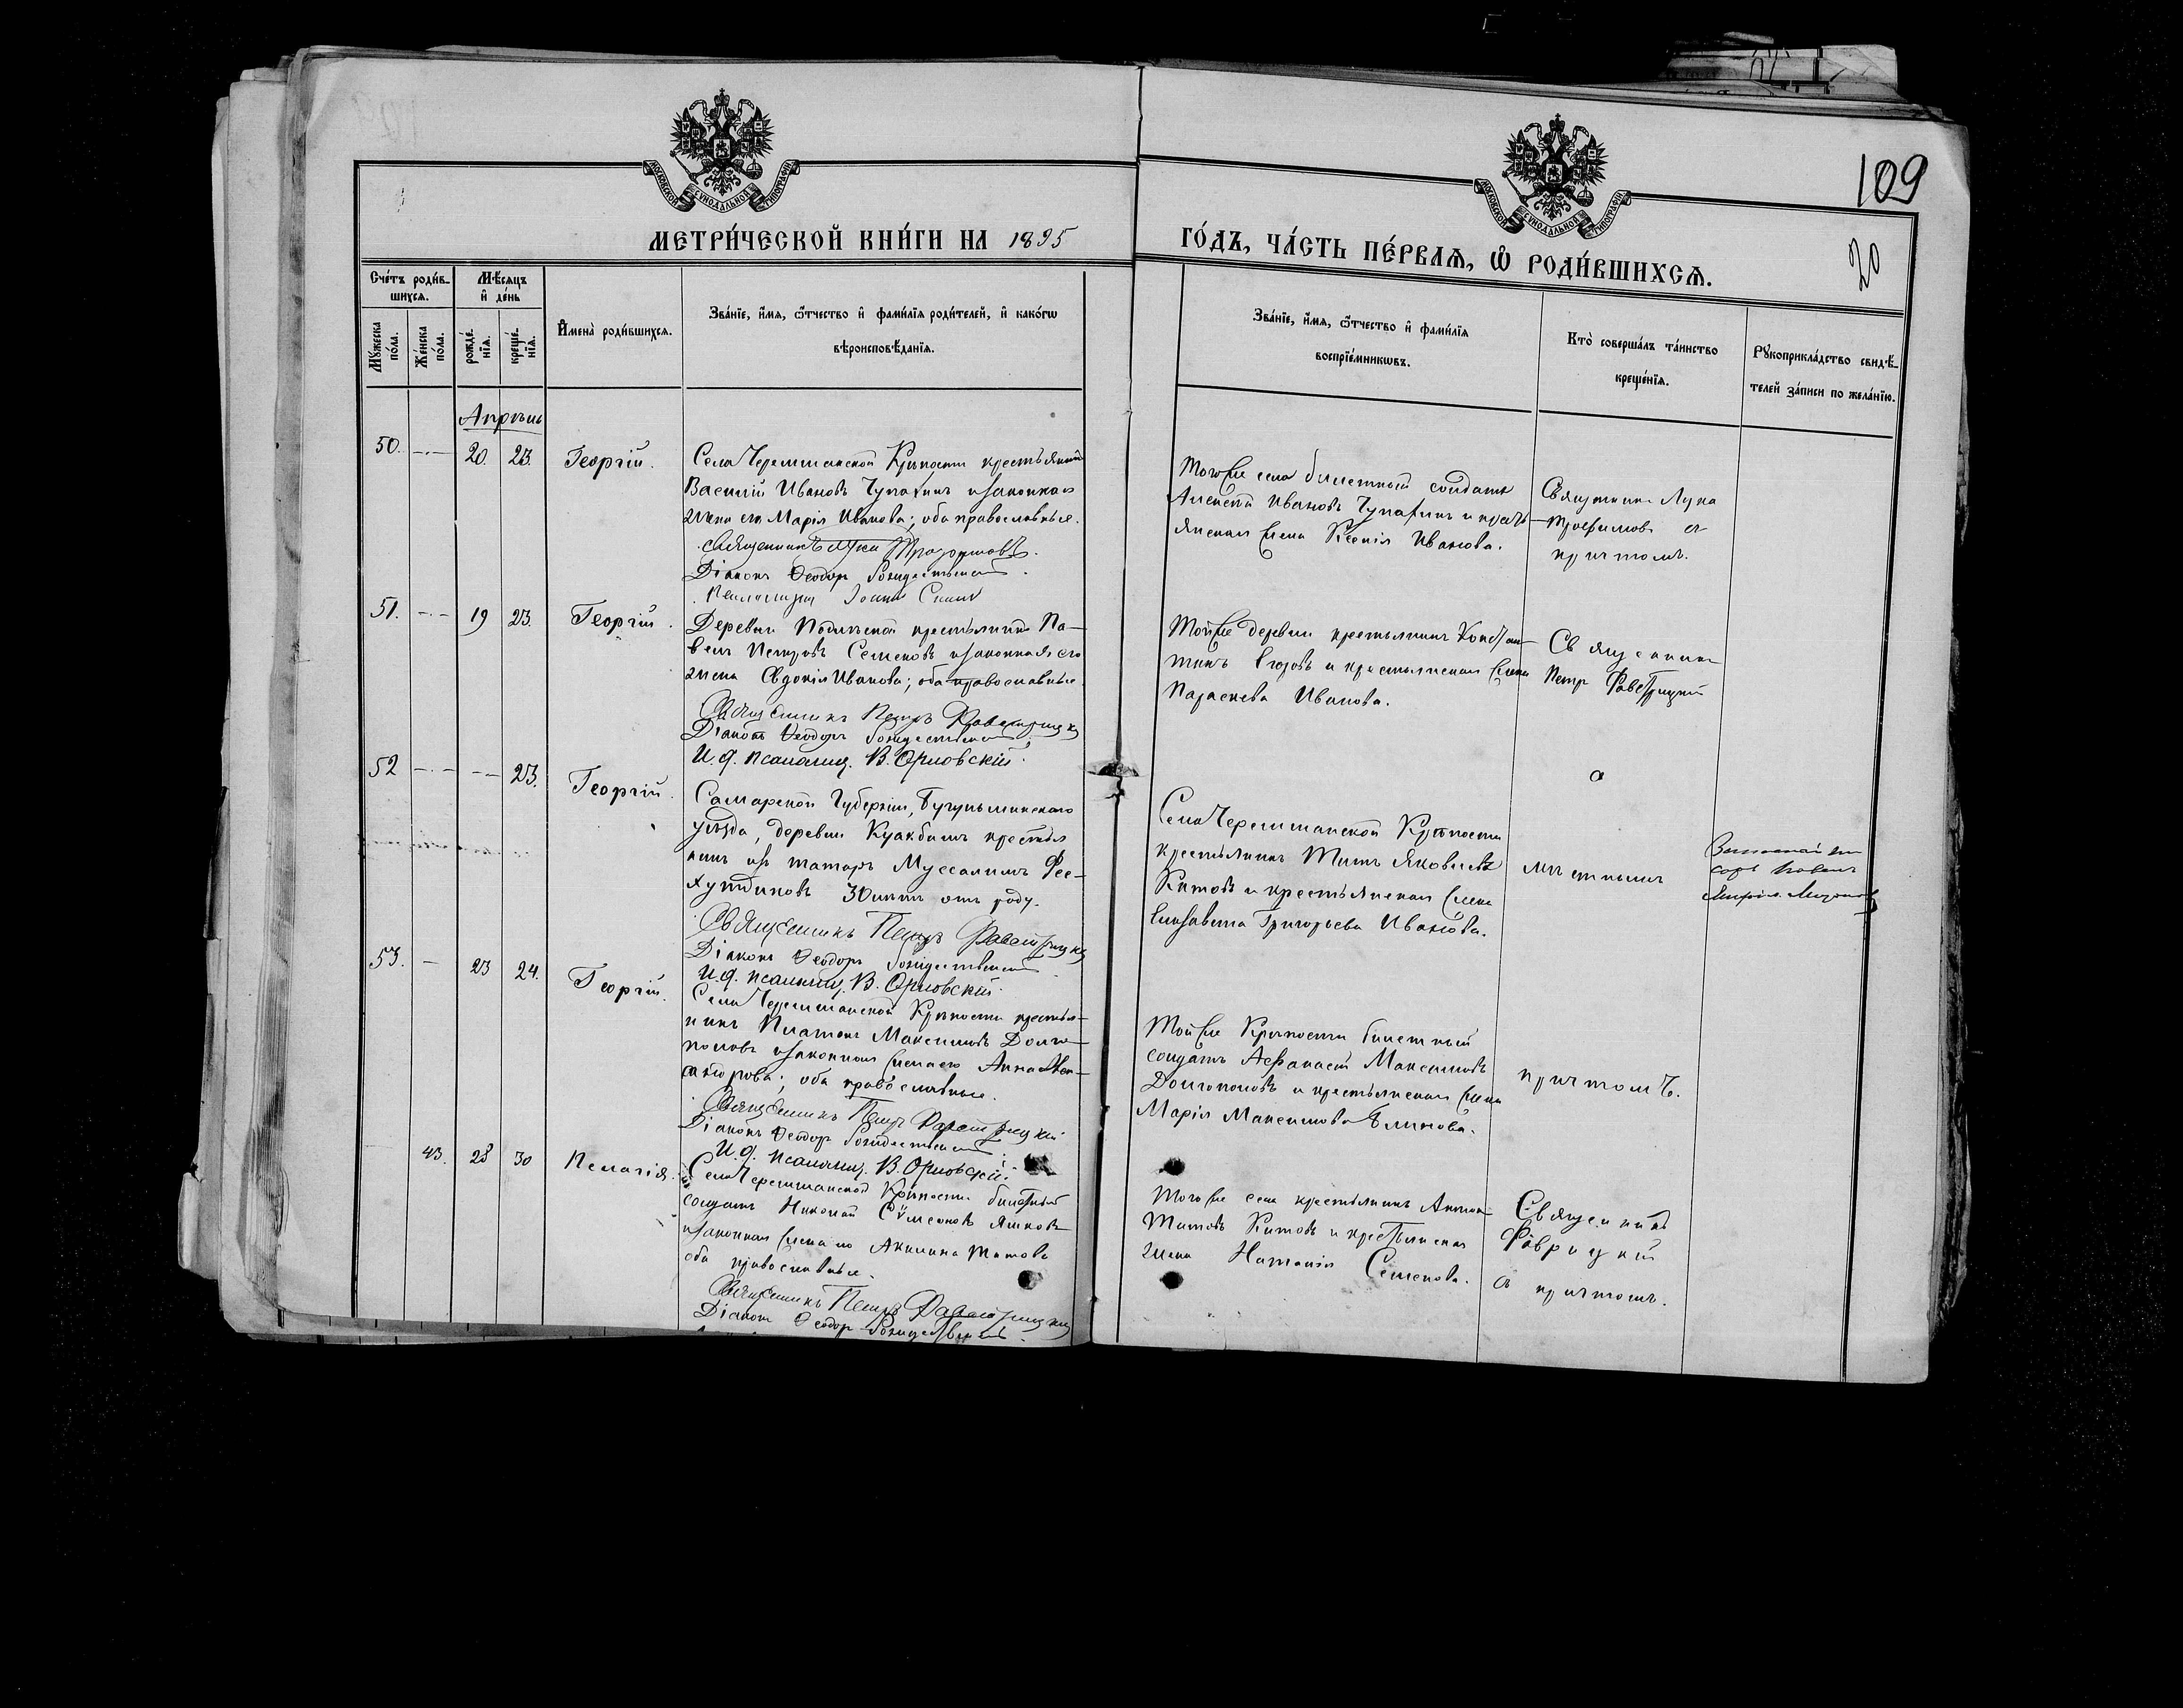 109
МОСКОВСКОЙ СѴНОДАЛЬНОЙ ТИПОГРАФІИ
МОСКОВСКОЙ СѴНОДАЛЬНОЙ ТИПОГРАФІИ
МЕТРИ́ЧЕСКОЙ КНИ́ГИ НА 1895
ГО́ДЪ, ЧА́СТЬ ПЕ́РВАѦ, Ѡ҆ РОДИ́ВШИХСѦ.
20
Сче́тъ роди́в-
шихсѧ.
Мꙋ́жеска по́ла.
Же́нска по́ла.
Мѣ́сѧцъ и҆ де́нь
рожде́нїѧ.
креще́нїѧ.
И҆мена̀ роди́вшихсѧ.
Зва́нїе, и҆́мѧ, ѻ҆́тчество и҆ фами́лїѧ роди́телей, и҆ како́гѡ
вѣроисповѣ́данїѧ.
Зва́нїе, и҆́мѧ, ѻ҆́тчество и҆ фами́лїѧ
воспрїе́мникѡвъ.
Кто̀ соверша́лъ та́инство
креще́нїѧ.
Рꙋкоприкла́дство свидѣ́-
телей за́писи по жела́нїю.
Апрѣль
50. 20. 23. Георгій.
Села Черемшанской Крѣпости крестьянинъ
Василій Ивановъ Чупахинъ и законная
жена его Марія Иванова; оба православные.
Священникъ Лука Трофимовъ.
Діаконъ Ѳеодоръ Рождественскій.
Псаломщикъ Іоаннъ
Того же села билетный солдатъ
Алексѣй Ивановъ Чупахинъ и кресть-
янская жена Ксенія Иванова.
Священникъ Лука
Трофимовъ съ
причтомъ.
51. 19 23. Георгій.
Деревни крестьянинъ Па-
велъ Петровъ Семеновъ и законная его
жена Евдокія Иванова; оба православные.
Священникъ Петръ
Діаконъ Ѳеодоръ Рождественскій.
И. д. псаломщ. В. Орловскій.
Той же деревни крестьянинъ Констан-
тинъ Егоровъ и крестьянская жена
Параскева Иванова.
Священникъ
Петръ
52 23. Георгій.
Самарской Губерніи, Бугульминскаго
уѣзда, деревни Куакбашъ крестья
нинъ изъ татаръ Муссалимъ Фес-
хутдиновъ 30 лѣтъ отъ роду.
Священникъ Петръ
Діаконъ Ѳеодоръ Рождественскій.
И. д. псаломщ. В. Орловскій.
Села Черемшанской Крѣпости
крестьянинъ Титъ Яковлевъ
Китовъ и крестьянская жена
Елизавета Григорьева Иванова.
съ
мѣстнымъ
53. 23 24. Георгій.
Села Черемшанской Крѣпости крестья-
нинъ Платонъ Максимовъ Долго-
половъ и законная жена его Анна
оба православные.
Священникъ Петръ
Діаконъ Ѳеодоръ Рождественскій.
И. д. псаломщ. В. Орловскій.
Той же Крѣпости билетный
солдатъ Аѳанасій Максимовъ
Долгополовъ и крестьянская жена
Марія Максимова Блинова.
причтомъ.
43. 28 30 Пелагія.
Села Черемшанской Крѣпости билетный
солдатъ Николай Сѵмеоновъ Яшковъ
и законная жена его Акилина Титова
оба православные.
Священникъ Петръ
Діаконъ Ѳеодоръ Рождественскій.
Того же села крестьянинъ Антонъ
Титовъ Китовъ и крестьянская
жена Наталія Семенова.
Священникъ
съ причтомъ.